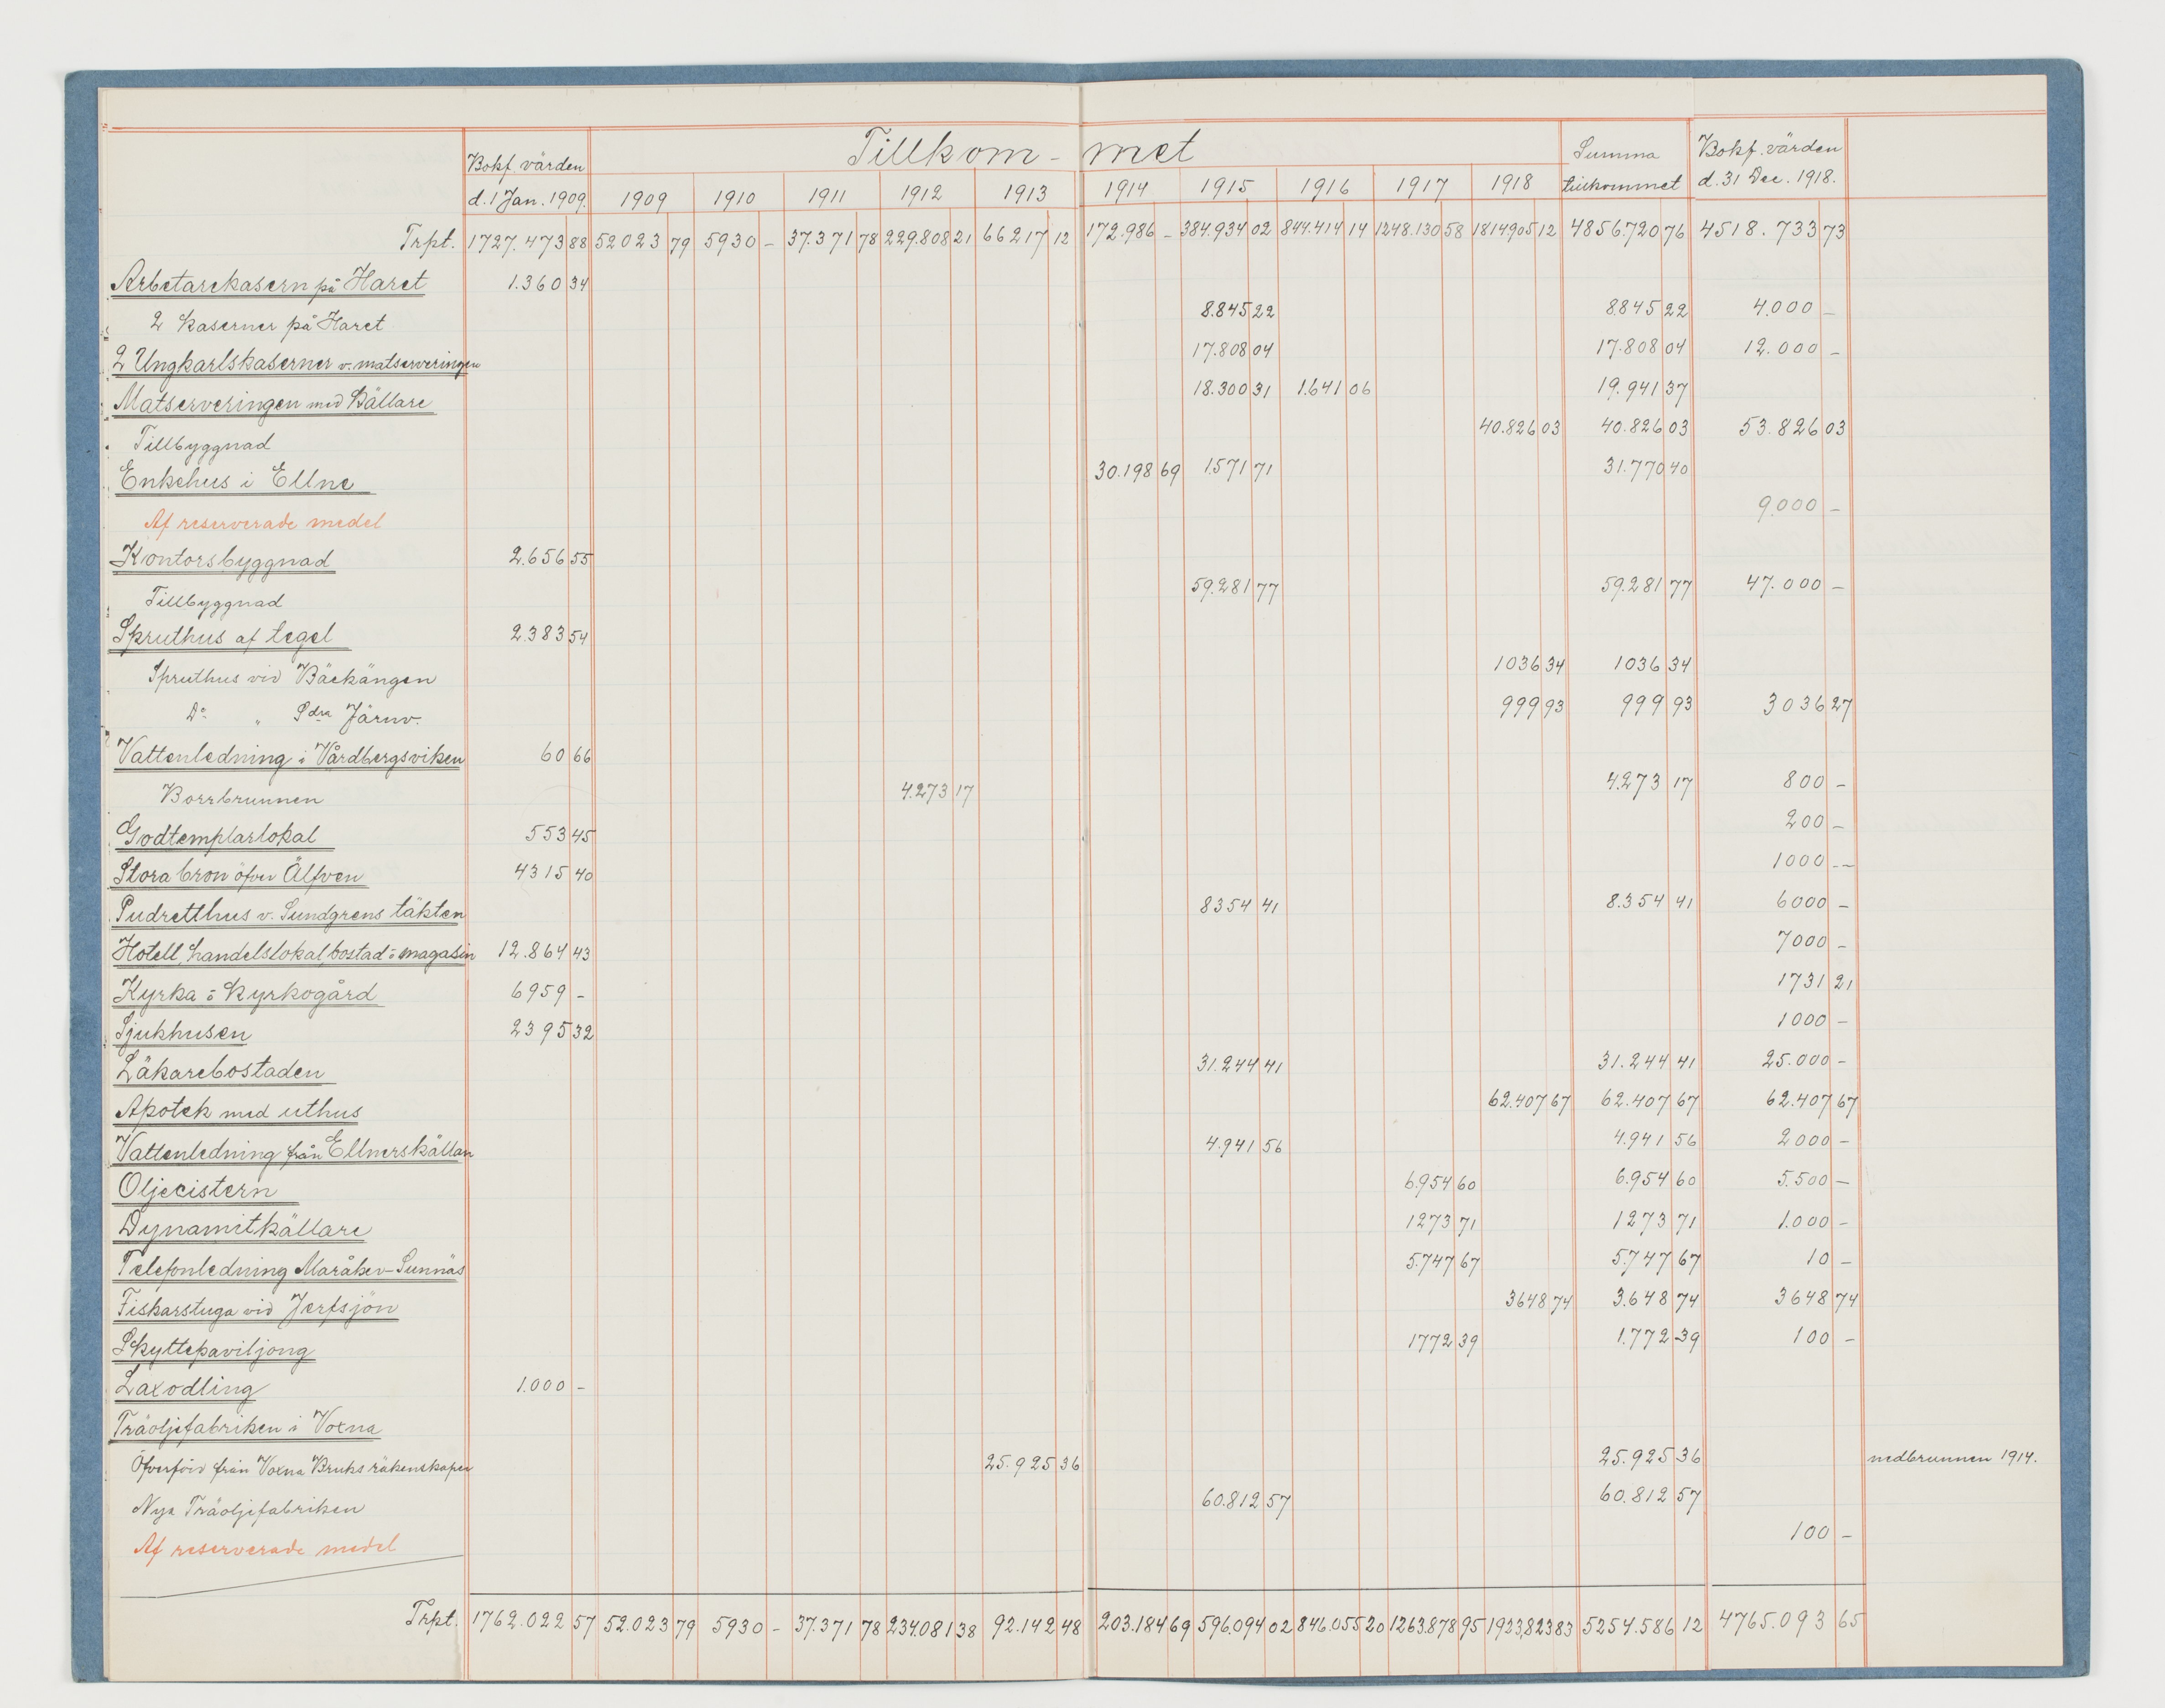 Tillkom-met
Bokf. värden d. 1 Jan. 1909. 1909 1910 1911 1912 1913 1914 1915 1916 1917 1918 Summa tillkommet Bokf. värden d. 31 Dec. 1918.
Trpt. 1727.473 88 52023 79 5930 - 37.371 78 229.808 21 66217 12 172.986 - 384.934 02 844.414 14 1248.130 58 1814.905 12 4856.720 76 4518.733 73
Arbetarekasern på Haret 1.360 34
2 Kaserner på Haret 8.845 22 8845 22 4.000 -
2 Ungkarlskaserner v. matserveringen 17.808 04 17.808 04 12.000 -
Matserveringen med Källare 18.300 31 1.641 06 19.941 37
Tillbyggnad 40.826 03 40.826 03 53.826 03
Enkehus i Ellne 30.198 69 1.571 71 31.770 40
Af reserverade medel 9.000 -
Kontorsbyggnad 2.656 55
Tillbyggnad 59.281 77 59.281 77 47.000 -
Spruthus af tegel 2.383 54
Spruthus vid Bäckängen 1036 34 1036 34
Do " Sdra Järnv. 999 93 999 93 3036 27
Vattenledning i Vårdbergsviken 60 66
Borrbrunnen 4.273 17 4.273 17 800 -
Godtemplarlokal 553 45 200 -
Stora bron öfver Älfven 4315 40 1000 -
Pudretthus v. Sundgrens täkten 8354 41 8.354 41 6000 -
Hotell, handelslokal, bostad o magasin 12.864 43 7000 -
Kyrka o Kyrkogård 6959 - 1731 21
Sjukhusen 2395 32 1000 -
Läkarebostaden 31.244 41 31.244 41 25.000 -
Apotek med uthus 62.407 67 62.407 67 62.407 67
Vattenledning från Ellnerskällan 4.941 56 4.941 56 2000 -
Oljecistern 6.954 60 6.954 60 5.500 -
Dynamitkällare 1273 71 1273 71 1.000 -
Telefonledning Maråker-Sunnäs 5.747 67 5.747 67 10 -
Fiskarstuga vid Jerfsjön 3648 74 3.648 74 3648 74
Skyttepaviljong 1772 39 1.772 39 100 -
Laxodling 1.000 -
Träoljefabriken i Voxna
Öfverförd från Voxna Bruks räkenskaper 25.925 36 25.925 36 nedbrunnen 1914.
Nya Träoljefabriken 60.812 57 60.812 57
Af reserverade medel 100 -
Trpt. 1762.022 57 52.023 79 5930 - 37.371 78 234.081 38 92.142 48 203.184 69 596.094 02 846.055 20 1263.878 95 1923.823 83 5254.586 12 4765.093 65